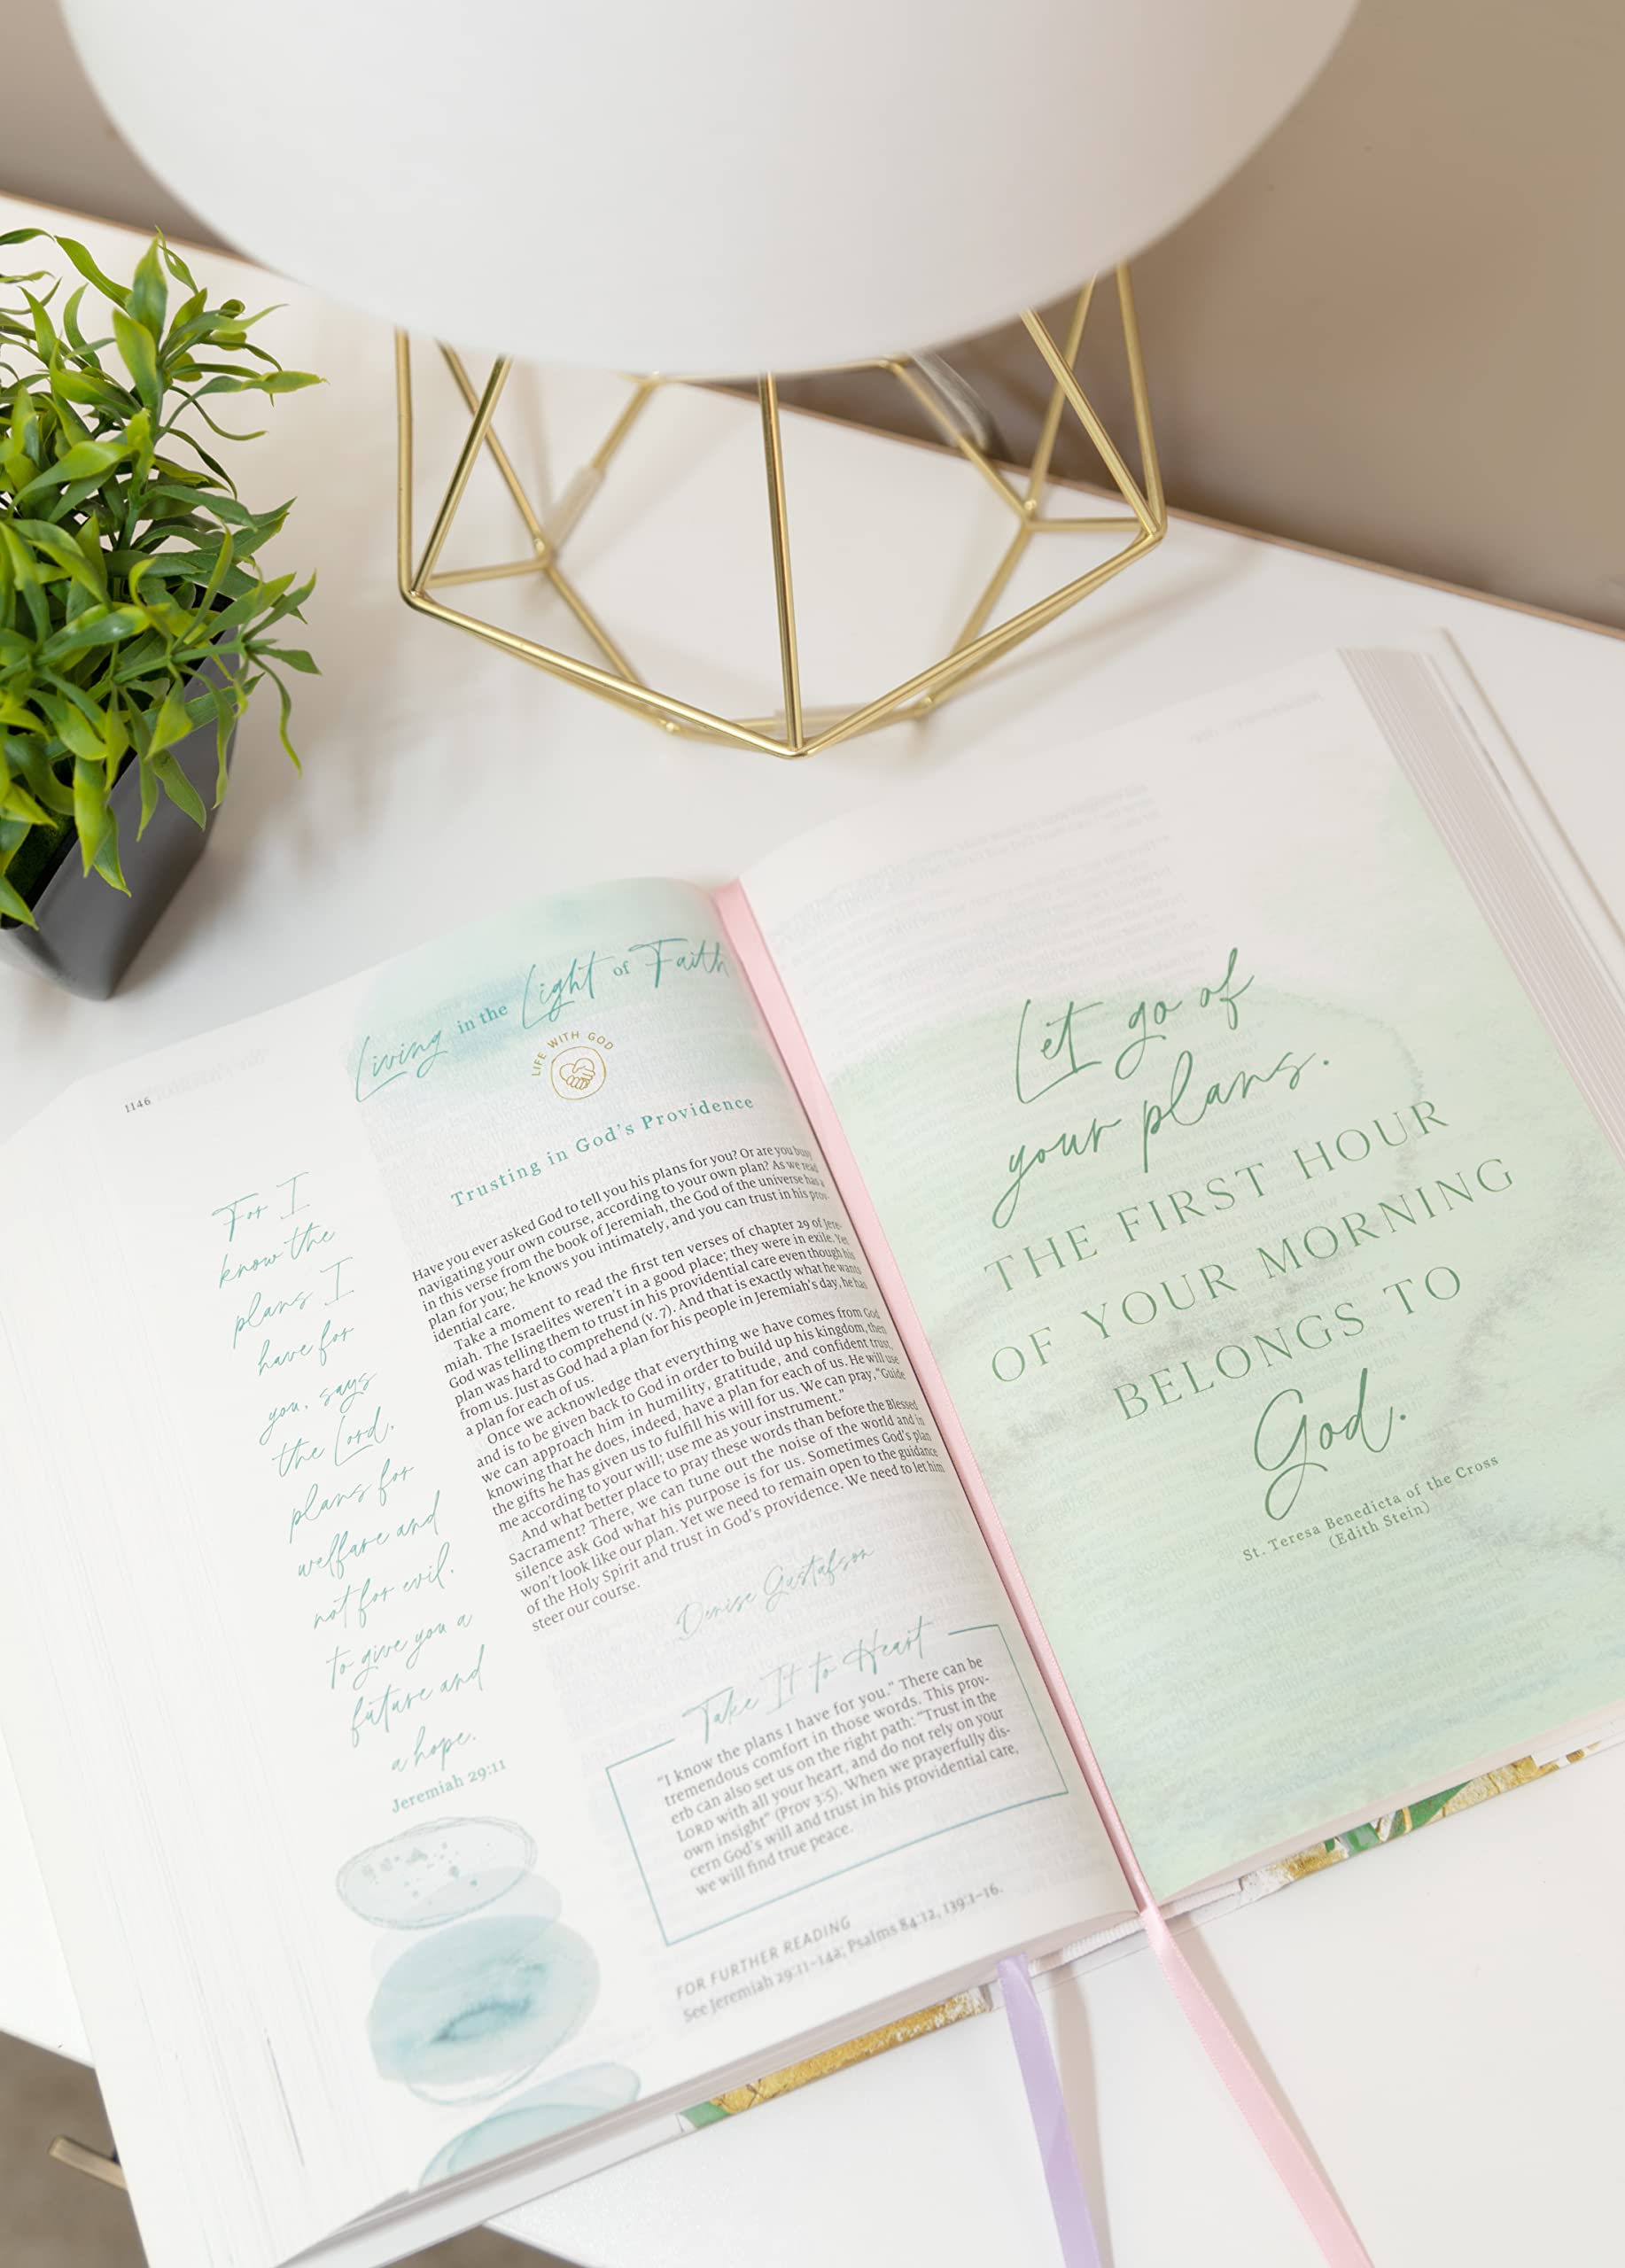 1146
Living in the Light of Faith
LIFE WITH GOD
Trusting in God's Providence
For I
know the
plans I
have for
you, says
the Lord,
plans for
welfare and
not for evil,
to give you a
future and
a hope.
Jeremiah 29:11
Have you ever asked God to tell you his plans for you? Or are you busy
navigating your own course, according to your own plan? As we read
in this verse from the book of Jeremiah, the God of the universe has a
plan for you; he knows you intimately, and you can trust in his prov-
idential care.
Take a moment to read the first ten verses of chapter 29 of Jere-
miah. The Israelites weren't in a good place; they were in exile. Yet
God was telling them to trust in his providential care even though his
plan was hard to comprehend (v. 7). And that is exactly what he wants
from us. Just as God had a plan for his people in Jeremiah's day, he has
a plan for each of us.
Once we acknowledge that everything we have comes from God
and is to be given back to God in order to build up his kingdom, then
we can approach him in humility, gratitude, and confident trust,
knowing that he does, indeed, have a plan for each of us. He will use
the gifts he has given us to fulfill his will for us. We can pray, "Guide
me according to your will; use me as your instrument."
And what better place to pray these words than before the Blessed
Sacrament? There, we can tune out the noise of the world and in
silence ask God what his purpose is for us. Sometimes God's plan
won't look like our plan. Yet we need to remain open to the guidance
of the Holy Spirit and trust in God's providence. We need to let him
steer our course.
Denise Gustafson
Take It to Heart
"I know the plans I have for you." There can be
tremendous comfort in those words. This prov-
erb can also set us on the right path: "Trust in the
LORD with all your heart, and do not rely on your
own insight" (Prov 3:5). When we prayerfully dis-
cern God's will and trust in his providential care,
we will find true peace.
FOR FURTHER READING
See Jeremiah 29:11–14a; Psalms 84:12, 139:1–16.
Let go of
your plans.
THE FIRST HOUR
OF YOUR MORNING
BELONGS TO
God.
St. Teresa Benedicta of the Cross
(Edith Stein)